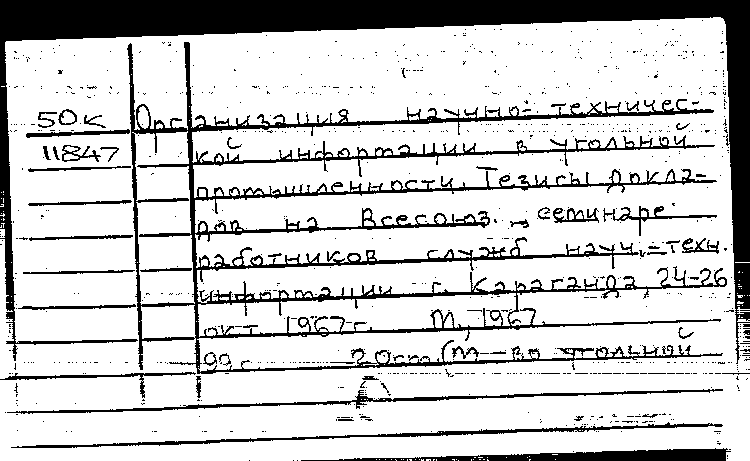 50к Организация научно-техничес-
11847 кой информации в угольной
промышленности. Тезисы докла-
дов на Всесоюз. семинаре
работников служб науч.-техн.
информации г. Караганда, 24-26
окт. 1967 г. М., 1967.
99 с. 20 см. (М-во угольной